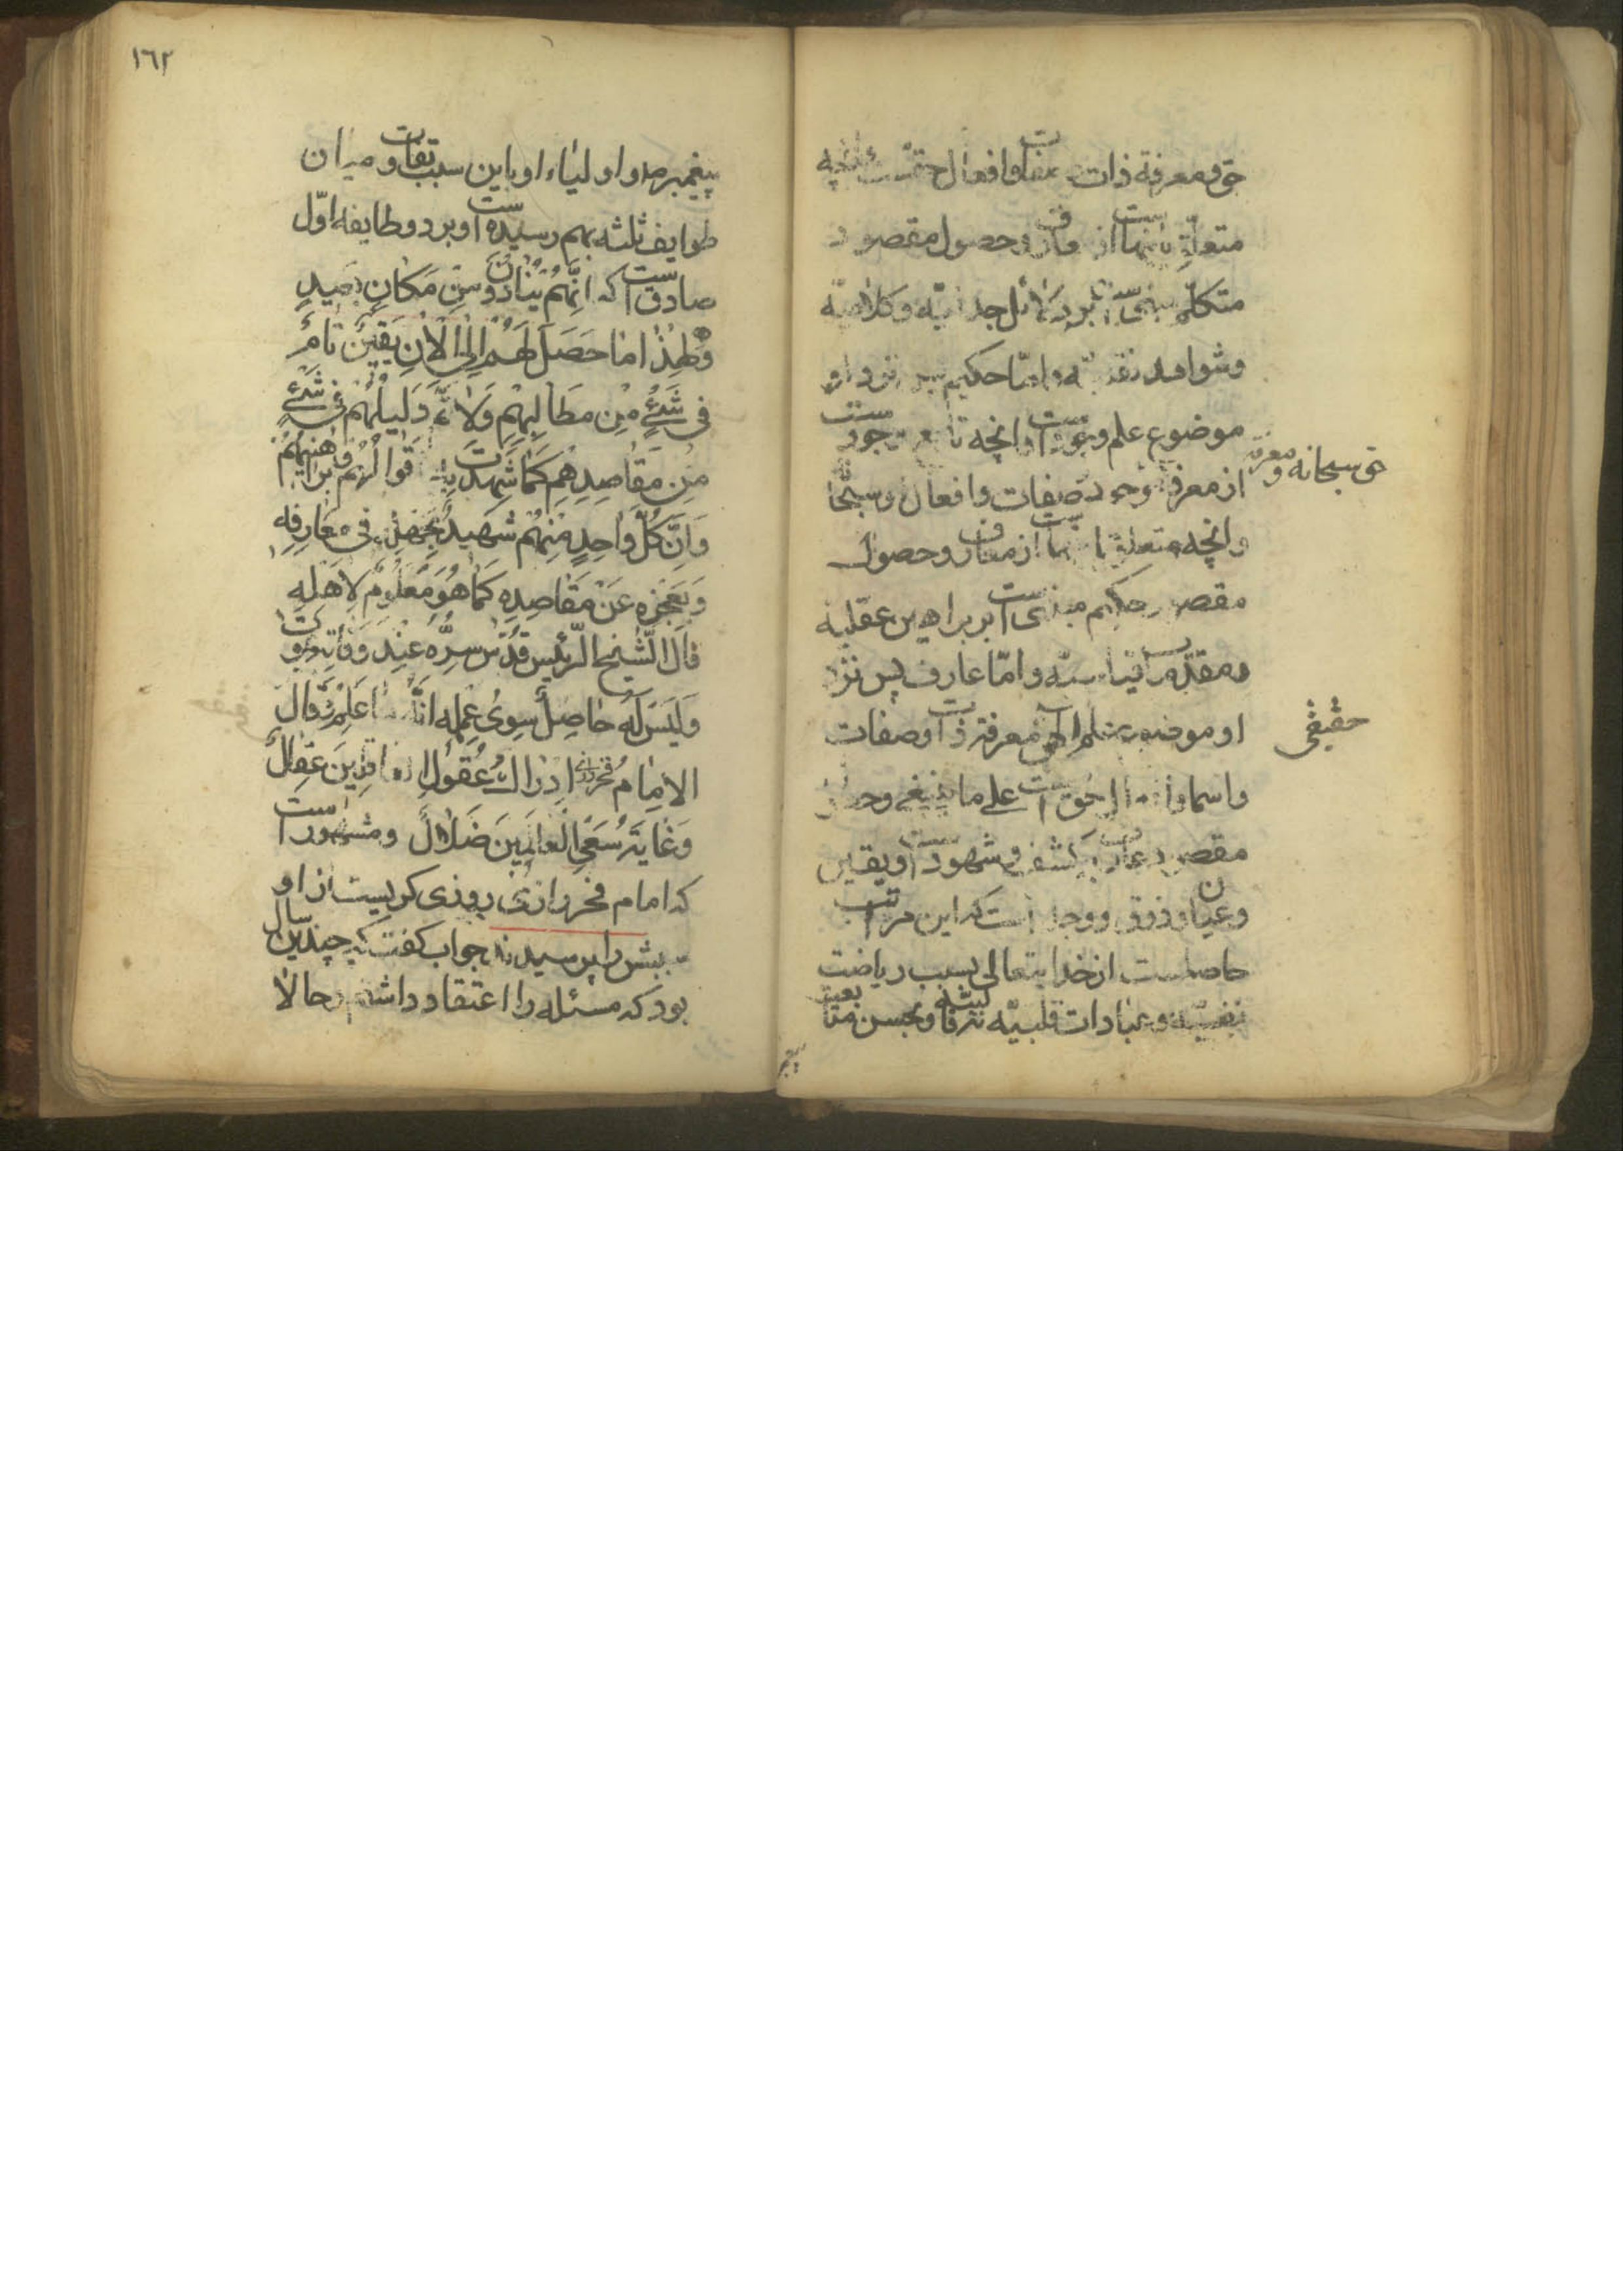 حق و معرفة ذات و صفات و افعال حقست و آنچه
متعلق بانهاست از معارف و حصول مقصود
متکلم مبنی است بر دلائل جدلیّه و کلامیّه
و شواهد نقلیّه و امّا حکیم پس نزد او
موضوع علم وجودست و انچه تابع وجودست
از معرفة وجود و صفات و افعال او سبحانه
حق سبحانه و معرفة
و انچه متعلق بانهاست از معارف و حصول
مقصود حکیم مبنی است بر براهین عقلیه
و مقدمات قیاسیّه و امّا عارف پس نزد
او موضوع علم الهی معرفة ذات و صفات
حقیقی
و اسما و افعال حق است علی ما ینبغی و حصول
مقصود عارف بکشف و شهودست و یقین
و عیان و ذوق و وجدانست که این مراتب
حاصلست از خدایتعالی بسبب ریاضت
نفسیّه و عبادات قلبیّه و بحسن متابعت
١٦٢
پیغمبر صم و اولیاء او باین سبب تفاوت میان
طوایف ثلثه بهم رسیده است و بر دو طایفه اوّل
صادقست که اِنَّهُم یُنَادَوْنَ مِن مَکَانٍ بَعِیدٍ
وَلِهٰذا مَا حَصَلَ لَهُم اِلَی الاٰنِ یَقِینٌ تَامٌ
فی شَیْءٍ مِن مَطَالِبِهِم وَلَا تَمَّ دَلِیلُهُم فی شَیْءٍ
مِن مَقَاصِدِهِم کَمَا شَهِدَت بِهِ اَقوالُهُم و براهینهم
وَاَنَّ کُلَّ وَاحِدٍ مِنهُم شَهِیدٌ بِجَهلِهِ فی مَعَارِفِه
وَبِعَجزِه عَن مَقَاصِدِه کَمَا هُوَ مَعلُومٌ لِاَهلِه
قال الشَّیخ الرَّئیس قُدِّسَ سِرُّه عِندَ وَفَاتِه یَموت
وَلَیسَ لَهُ حَاصِلٌ سِوی عِلمِه اَنَّهُ مَا عَلِم وَقَالَ
الامَامُ فخر رازی اِدرَاکُ عُقُولِ العاقلِینَ عِقَالٌ
وَغَایَةُ سَعیِ العالَمِینَ ضَلَالٌ و مشهورست
که امام فخر رازی روزی کریست از او
سببش را پرسیدند جواب کفت که چندین سال
بود که مسئله را اعتقاد داشتم حالا